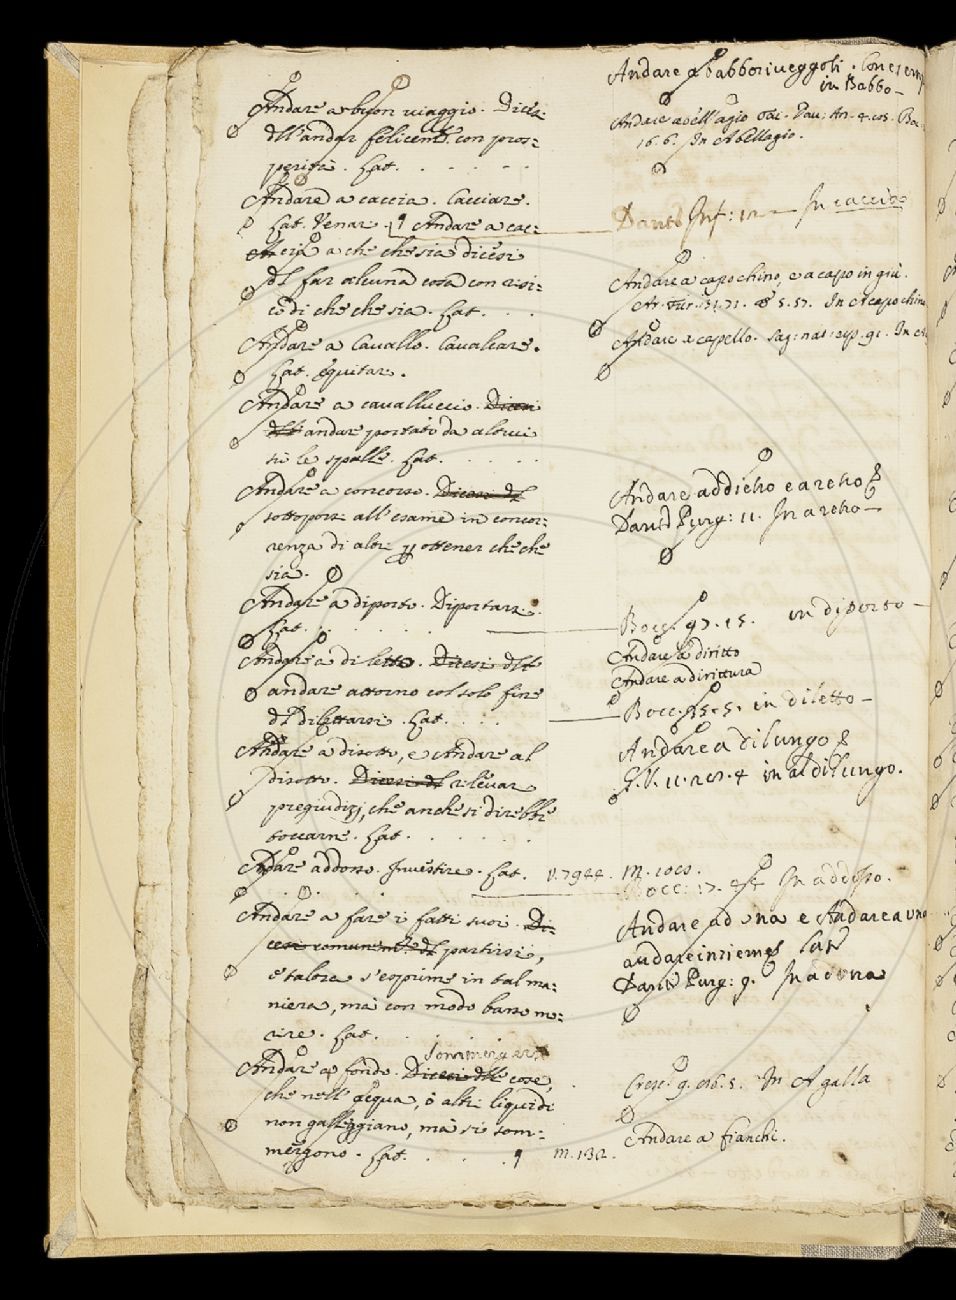 Andare a buon viaggio. Dicesi
dell'andar felicemte. con pros=
perità. Lat. . . . .
Andare a caccia. Cacciare.
Lat. Venar. ¶ Andare a cac=
cia a che che sia dicesi
del far alcuna cosa con risi=
co di che che sia. Lat. . . .
Andare a Cavallo. Cavalcare.
Lat. equitar.
Andare a cavalluccio. Dicesi
dell' andare portato da altrui
sù le spalle. Lat. . . . .
Andare a concorso. Dicesi del
sottoporsi all'esame in concor=
renza di altri per ottener che che
sia.
Andare a diporto. Diportarsi.
Lat. . . . . .
Andare a diletto. Dicesi dell'
andare attorno col solo fine
di dilettarsi. Lat. . . .
Andare a disotto, e Andare al
disotto. Dicesi del rilevar
pregiudizj, che anche si direbbe
toccarne. Lat. . . . .
Andare addosso. Investire. Lat. V. 7944. M. 1060.
Andare a fare i fatti suoi. Di=
cesi comunemte. del partirsi,
e talora s'esprime in tal ma=
niera, ma con modo basso mo=
rire. Lat. . .
sommergersi
Andare a fondo. Dicesi delle cose,
che nell'acqua, ò altri liquidi
non galleggiano, ma si som=
mergono. Lat. . . . ¶ m. 132.
Andare a babboriveggoli. Con esemp.
in Babbo –
Andare a dell'agio
16. 6. In Abellagio.
Dante Inf: 12 — In caccia
Andare a capo chino, e a capo in giù.
5. 57. In A capo chino
Andare a capello. Sag: nat: esp. 91. In
Andare addietro e a retro
Dante Purg: 11. In a retro –
Bocc. 97. 15. in diporto –
Andare a diritto
Andare a dirittura
Bocc. 55. 5. in diletto –
Andare a dilungo
G. V. 11. in al dilungo.
Bocc: 17. In addosso.
Andare ad una e Andare a una
andare insieme
Dante Purg: 9. In ad una
Cresc. 9. In A galla
Andare a fianchi.